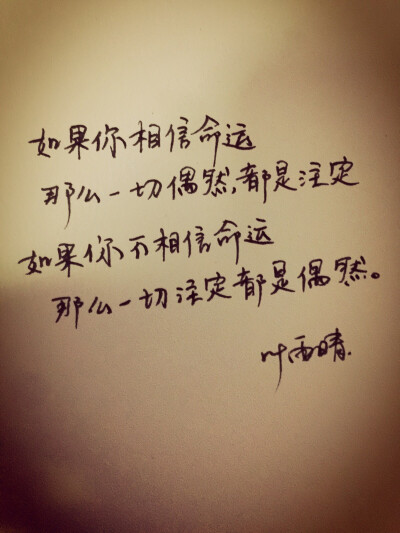 如果你相信命运
那么一切偶然,都是注定
如果你不相信命运
那么一切注定都是偶然。
叶雨晴.